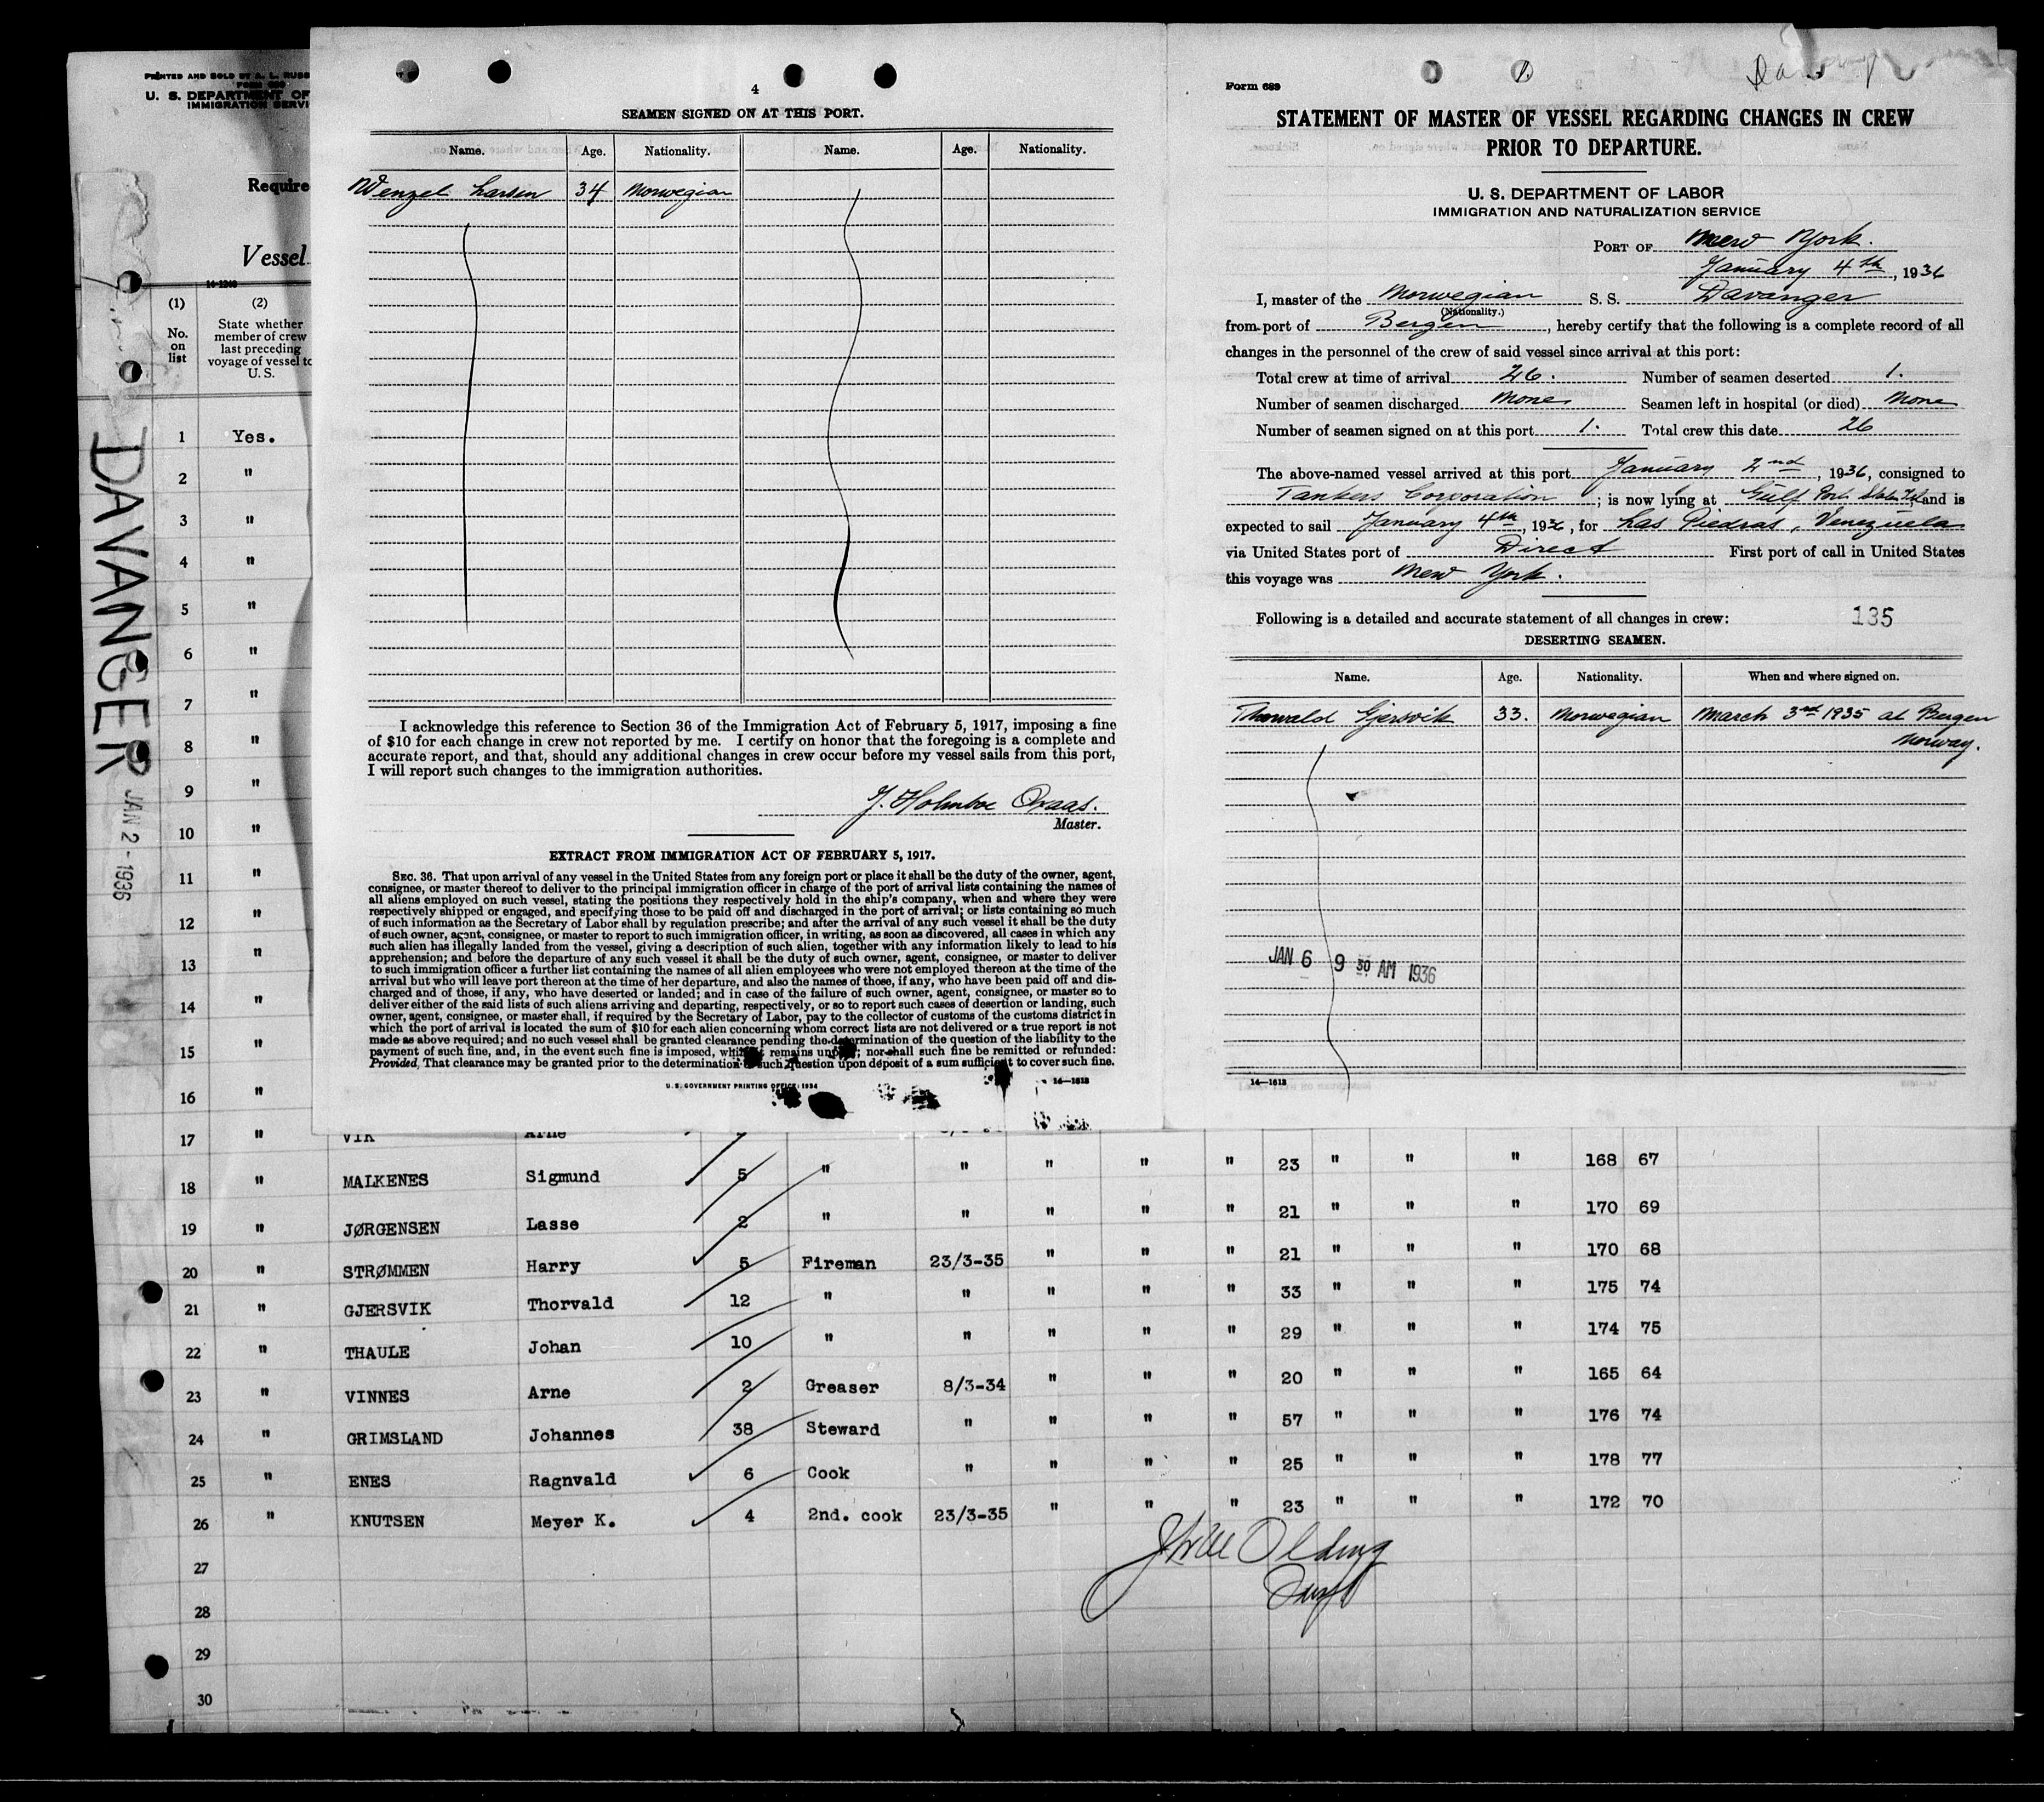 PRINTED AND SOLD BY A. L. RUSS
FORM 689
U. S. DEPARTMENT OF
IMMIGRATION SERVI
Require
Vessel
14-1240
(1)
No.
on
list
(2)
State whether
member of crew
last preceding
voyage of vessel to
U. S.
1 Yes.
2 "
3 "
4 "
5 "
6 "
7 "
8 "
9 "
10 "
11 "
12 "
13 "
14 "
15 "
16 "
DAVANGER
JAN 2 - 1936
4
SEAMEN SIGNED ON AT THIS PORT.
Name. Age. Nationality. Name. Age. Nationality.
Wenzel Larsen 34 Norwegian
I acknowledge this reference to Section 36 of the Immigration Act of February 5, 1917, imposing a fine
of $10 for each change in crew not reported by me. I certify on honor that the foregoing is a complete and
accurate report, and that, should any additional changes in crew occur before my vessel sails from this port,
I will report such changes to the immigration authorities.
J. Holmboe Qvaas.
Master.
EXTRACT FROM IMMIGRATION ACT OF FEBRUARY 5, 1917.
SEC. 36. That upon arrival of any vessel in the United States from any foreign port or place it shall be the duty of the owner, agent,
consignee, or master thereof to deliver to the principal immigration officer in charge of the port of arrival lists containing the names of
all aliens employed on such vessel, stating the positions they respectively hold in the ship's company, when and where they were
respectively shipped or engaged, and specifying those to be paid off and discharged in the port of arrival; or lists containing so much
of such information as the Secretary of Labor shall by regulation prescribe; and after the arrival of any such vessel it shall be the duty
of such owner, agent, consignee, or master to report to such immigration officer, in writing, as soon as discovered, all cases in which any
such alien has illegally landed from the vessel, giving a description of such alien, together with any information likely to lead to his
apprehension; and before the departure of any such vessel it shall be the duty of such owner, agent, consignee, or master to deliver
to such immigration officer a further list containing the names of all alien employees who were not employed thereon at the time of the
arrival but who will leave port thereon at the time of her departure, and also the names of those, if any, who have been paid off and dis-
charged and of those, if any, who have deserted or landed; and in case of the failure of such owner, agent, consignee, or master so to
deliver either of the said lists of such aliens arriving and departing, respectively, or so to report such cases of desertion or landing, such
owner, agent, consignee, or master shall, if required by the Secretary of Labor, pay to the collector of customs of the customs district in
which the port of arrival is located the sum of $10 for each alien concerning whom correct lists are not delivered or a true report is not
made as above required; and no such vessel shall be granted clearance pending the determination of the question of the liability to the
payment of such fine, and, in the event such fine is imposed, while it remains unpaid; nor shall such fine be remitted or refunded:
Provided, That clearance may be granted prior to the determination of such question upon deposit of a sum sufficient to cover such fine.
U. S. GOVERNMENT PRINTING OFFICE: 1934 14—1613
Form 689
STATEMENT OF MASTER OF VESSEL REGARDING CHANGES IN CREW
PRIOR TO DEPARTURE.
U. S. DEPARTMENT OF LABOR
IMMIGRATION AND NATURALIZATION SERVICE
PORT OF New York.
January 4th, 1936
I, master of the Norwegian S. S. Davanger
(Nationality.)
from port of Bergen, hereby certify that the following is a complete record of all
changes in the personnel of the crew of said vessel since arrival at this port:
Total crew at time of arrival 26. Number of seamen deserted 1.
Number of seamen discharged None. Seamen left in hospital (or died) None
Number of seamen signed on at this port 1. Total crew this date 26
The above-named vessel arrived at this port January 2nd, 1936, consigned to
Tankers Corporation; is now lying at Gulf Port Staten Isl and is
expected to sail January 4th, 1936, for Las Piedras, Venezuela
via United States port of Direct First port of call in United States
this voyage was New York.
Following is a detailed and accurate statement of all changes in crew: 135
DESERTING SEAMEN.
Name. Age. Nationality. When and where signed on.
Thorvald Gjersvik 33. Norwegian March 3rd 1935 at Bergen
Norway.
JAN 6 9 30 AM 1936
14—1613
17 " VIK Arne
18 " MALKENES Sigmund 5 " " " " " 23 " " " 168 67
19 " JØRGENSEN Lasse 2 " " " " " 21 " " " 170 69
20 " STRØMMEN Harry 5 Fireman 23/3-35 " " " 21 " " " 170 68
21 " GJERSVIK Thorvald 12 " " " " " 33 " " " 175 74
22 " THAULE Johan 10 " " " " " 29 " " " 174 75
23 " VINNES Arne 2 Greaser 8/3-34 " " " 20 " " " 165 64
24 " GRIMSLAND Johannes 38 Steward " " " " 57 " " " 176 74
25 " ENES Ragnvald 6 Cook " " " " 25 " " " 178 77
26 " KNUTSEN Meyer K. 4 2nd. cook 23/3-35 " " " 23 " " " 172 70
27
28
29
30